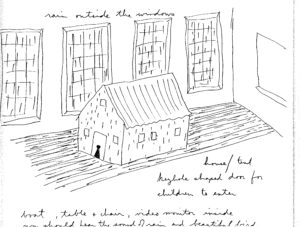 rain outside the windows
house/ tent
keyhole shaped door for
children to enter
boat, table + chair, video monitor inside
you should hear the sound of rain and beautiful bird